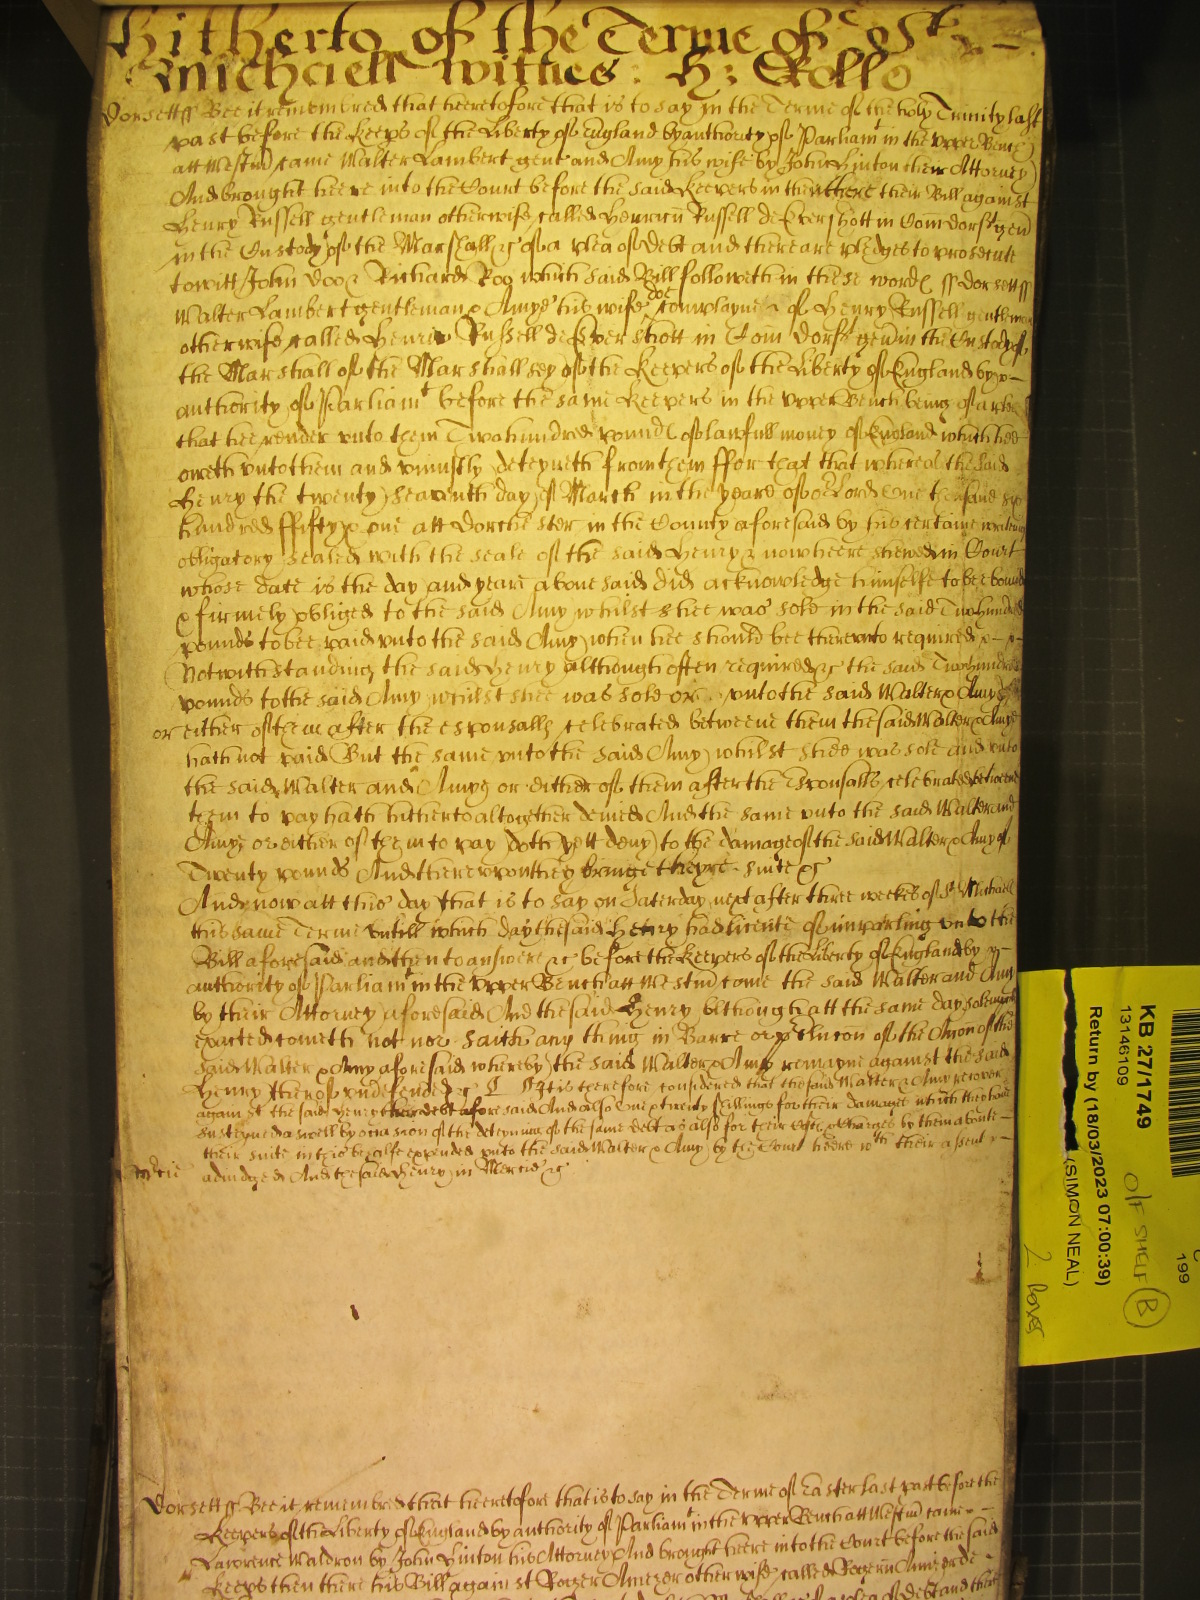 Hitherto of the Terme of St
Michaell witnes: H: Rollo
Dorsett ss Bee it remembred that heeretofore that is to say in the Terme of the holy Trinity last
past before the Keeps of the Liberty of England by authority of Parliamt in the upper Bench
att Westm came Walter Lambert gent and Amy his wife by John Linton their Attorney
And brought heere into the Court before the said Keepers in then there their Bill against
Henry Russell gentleman otherwise called Henricu Russell de Evershott in Com Dorst gen
in the Custody of the Marshall &c of a plea of Debt and there are pledges to prosecute
towitt John Doo & Richard Roo which said Bill followeth in these words ss Dorsett ss
Walter Lambert gentleman & Amye his wife doe complayne of Henry Russell gentleman
otherwise called Henric Russell de Evershott in Com Dorst gen in the Custody of
the Marshall of the Marshallsey of the Keepers of the Liberty of England by
authority of Parliamt before the same Keepers in the upper Bench being of a plea
that hee render unto them Two hundred pounds of lawfull money of England which hee
oweth unto them and uniustly deteyneth from them ffor that that whereas the said
Henry the twenty seaventh day of March in the yeare of or Lord One thousand six
hundred ffifty & one att Dorchester in the County aforesaid by his certaine writing
obligatory sealed with the seale of the said Henry & now heere shewed in Court
whose date is the day and yeare above said did acknowledge himselfe to bee bound
& firmely obliged to the said Amy whilst shee was sole in the said Two hundred
pounds to bee paid unto the said Amy when hee should bee thereunto required
Notwithstanding the said Henry although often required &c the said Two hundred
pounds to the said Amy whilst shee was sole or unto the said Walter & Amye
or either of them after the espousalls celebrated betweene them the said Walter & Amye
hath not paid But the same unto the said Amy whilst shee was sole and unto
the said Walter and Amye or either of them after the Espousalls celebrated betweene
them to pay hath hitherto altogether denied And the same unto the said Walter and
Amye or either of them to pay doth yett deny to the damage of the said Walter & Amy of
Twenty pounds And thereupon they bringe theyre suite &c
And now att this day that is to say on Saturday next after three weekes of St Michaell
this same Terme untill which day the said Henry had licence of imparling unto the
Bill aforesaid and then to answere &c before the Keepers of the Liberty of England by
authority of Parliamt in the upper Bench att Westm come the said Walter and Amy
by their Attorney aforesaid And the said Henry although att the same day solemnly
exacted cometh not nor saith any thing in Barre or preclucon of the Accon of the
said Walter & Amy aforesaid whereby the said Walter & Amy remayne against the said
Henry thereof undefended &c It is therefore considered that the said Walter & Amy recover
against the said Henry their debt aforesaid And also One & twenty shillings for their damages which they have
susteyned aswell by occasion of the deteyning of the same debt as also for their costs & charges by them aboute
their suite in this behalfe expended unto the said Walter & Amy by the Court heere wth their assent
adiudged And the said Henry in Mercie &c
Dorsett ss Bee it remembred that heeretofore that is to say in the Terme of Easter last past before the
Keepers of the Liberty of England by authority of Parliamt in the upper Bench att Westm came
Lawrence Waldron by John Linton his Attorney And brought heere into the Court before the said
Keeps then there his Bill against Roger otherwise called Rogeru de
of a plea of Debt and there
KB 27/1749
13146109
Return by (18/03/2023 07:00:39)
(SIMON NEAL)
199
O/F SHELF B
2 boxes